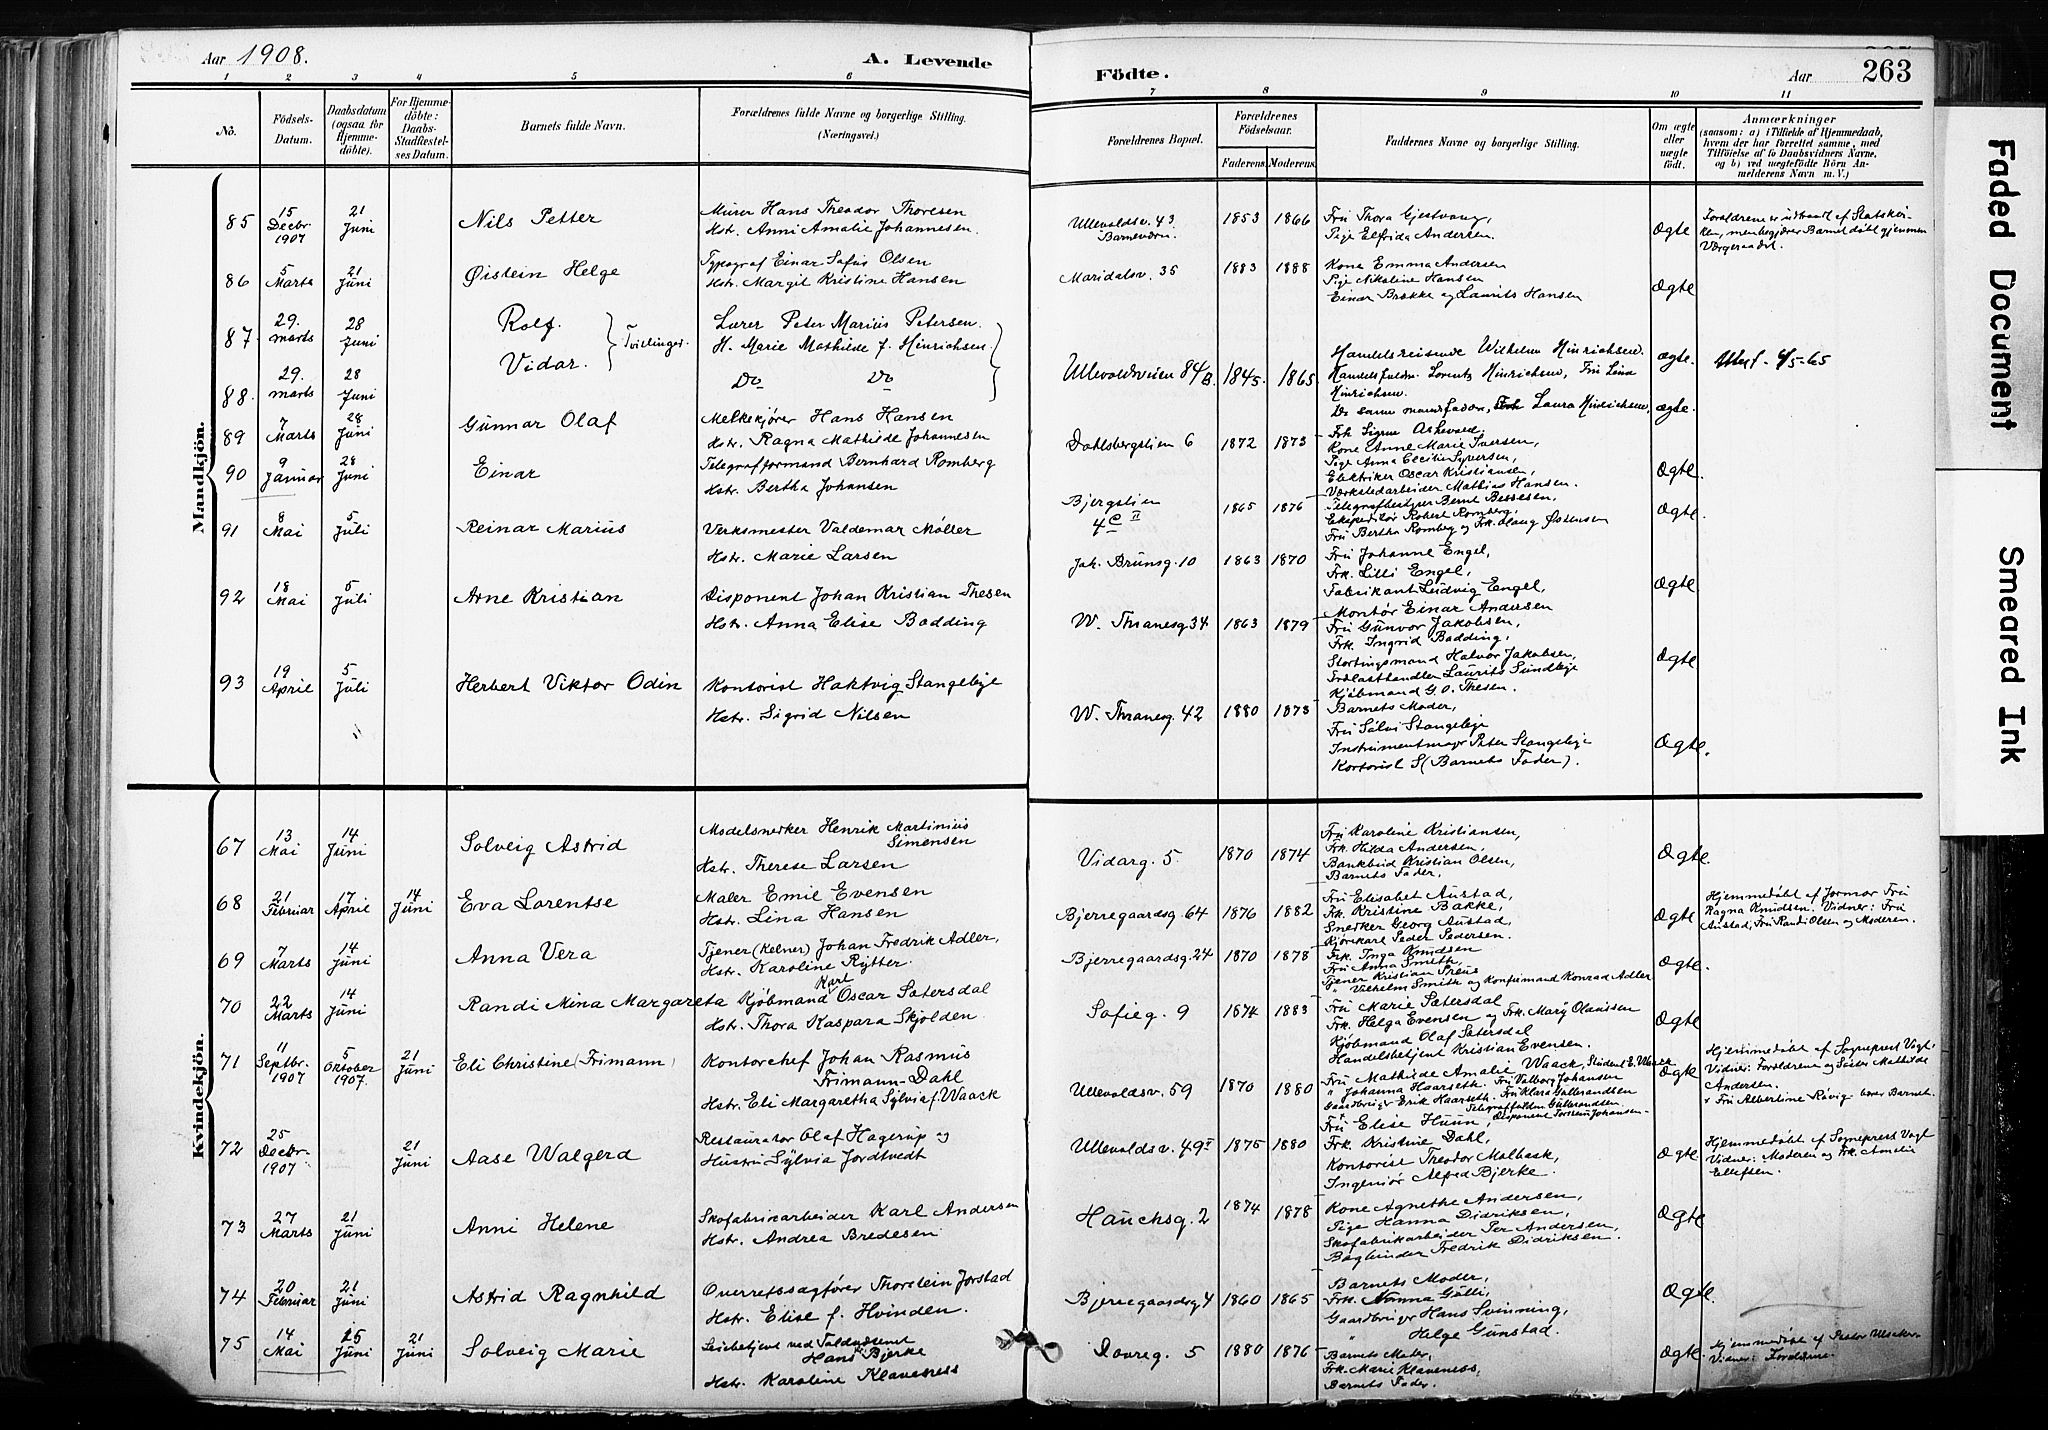 Aar 1908.
A. Levende Födte.
Aar
263
1 2 3 4 5 6 7 8 9 10 11
No.
Födsels-Datum.
Daabsdatum (ogsaa for Hjemme-döbte).
For Hjemme-döbte: Daabs-Stadfæstel-ses Datum.
Barnets fulde Navn.
Forældrenes fulde Navne og borgerlige Stilling. (Næringsvei.)
Forældrenes Bopæl.
Forældrenes Födselsaar.
Faderens. Moderens.
Faddernes Navne og borgerlige Stilling.
Om ægte eller uægte födt.
Anmærkninger
(saasom: a) i Tilfælde af Hjemmedaab, hvem der har forrettet samme, med Tilföielse af to Daabsvidners Navne, og b) ved uægtefödte Börn An-melderens Navn m. V.)
Mandkjön.
85 15 Decbr. 1907 21 Juni Nils Petter Murer Hans Theodor Thoresen
Hstr. Anni Amalie Johannesen. Ullevoldsv. 43 Barnevärn. 1853 1866 Fru Thora Gjestvang,
Pige Elfrida Andersen. Ægte Forældrene er udtraadt af Statskir-
ken, men begjærer Barnet døbt gjennem
Værgeraadet.
86 5 Marts 21 Juni Øistein Helge Typograf Einar Sofus Olsen
Hstr. Margit Kristine Hansen Maridalsv. 35 1883 1888 Kone Emma Andersen
Pige Nikoline Hansen
Einar Brække og Laurits Hansen Ægte
87. 29. marts 28 Juni Rolf. Tvillinger. Lærer Peter Marius Petersen.
H. Marie Mathilde f. Hinrichsen.
Ullevoldsveien 84 B. 1845. 1865. Handelsreisende Wilhelm Hinrichsen.
Handelsfuldm. Lorentz Hinrichsen, Fru Lina
Hinrichsen. ægte.
88. 29. marts 28 Juni Vidar. Do Do
De samme mandl. faddre, Laura Hinrichsen, ægte.
Frk Signe Askevold.
89 7 Marts 28 Juni Gunnar Olaf Melkekjører Hans Hansen
Hstr. Ragna Mathilde Johannesen Dahlsbergstien 6 1872 1873 Kone Anne Marie Iversen,
Pige Anna Cecilie Syversen,
Elektriker Oscar Kristiansen,
Værkstedarbeider Mathias Hansen. Ægte.
90 9 Januar 28 Juni Einar Telegrafformand Bernhard Romberg
Hstr. Bertha Johansen Bjergstien 4 C II 1865 1876 Telegrafbestyrer Bernt Bessesen,
Ekspeditør Robert Romberg,
Fru Bertha Romberg og Frk. Østensen Ægte.
91 8 Mai 5 Juli Reinar Marius Verksmester Valdemar Møller
Hstr. Marie Larsen Joh. Brunsg. 10 1863 1870 Fru Johanne Engel,
Frk. Lilli Engel,
Fabrikant Ludvig Engel,
Montør Einar Andersen Ægte
92 18 Mai 5 Juli Arne Kristian Disponent Johan Kristian Thesen
Hstr. Anna Elise Bødding W. Thranesg 34 1863 1879 Fru Gunvor Jakobsen,
Frk. Ingrid Bødding,
Stortingsmand Halvor Jakobsen,
Trælasthandler Laurits Sundbye
Kjøbmand G. O. Thesen. Ægte
93 19 April 5 Juli Herbert Viktor Odin Kontorist Haktvig Stangebye
Hstr. Sigrid Nilsen W. Thranesg. 42 1880 1873 Barnets Moder,
Fru Sølvi Stangebye
Instrumentmager Peter Stangebye
Kontorist S (Barnets Fader). Ægte.
Kvindekjön.
67 13 Mai 14 Juni Solveig Astrid Modelsnekker Henrik Martinius Simensen
Hstr. Therese Larsen Vidarg. 5. 1870 1874 Fru Karoline Kristiansen,
Frk. Hilda Andersen,
Bankbud Kristian Olsen,
Barnets Fader, Ægte.
68 21 Februar 17 April 14 Juni Eva Lorentse Maler Emil Evensen
Hstr. Lina Hansen Bjerregaardsg 64 1876 1882 Fru Elisabet Austad,
Frk. Kristine Bakke,
Snedker Georg Austad,
Kjørekarl Peder Pedersen. Ægte Hjemmedøbt af Jormor Fru
Ragna Knudsen. Vidner: Fru
Austad, Fru Randi Olsen og Moderen.
69 7 Marts 14 Juni Anna Vera Tjener (Kelner) Johan Fredrik Adler,
Hstr. Karoline Rytter. Bjerregaardsg. 24 1870 1878 Frk. Inga Knudsen
Fru Anna Smith,
Tjener Kristian Preus
" Vilhelm Smith og Konfirmand Konrad Adler Ægte.
70 22 Marts 14 Juni Randi Mina Margareta Kjøbmand Karl Oscar Sætersdal
Hstr. Thora Kaspara Skjolden. Sofieg. 9 1874 1883 Fru Marie Sætersdal
Frk. Helga Evensen og Frk. Mary Olaussen
Kjøbmand Olaf Sætersdal
Handelsbetjent Kristian Evensen. Ægte
71 11 Septbr. 1907 5 Oktober 1907. 21 Juni Eli Christine (Frimann) Kontorchef Johan Rasmus
Frimann-Dahl
Hstr. Eli Margaretha Sylvia f. Waack Ullevoldsv. 59 1870 1880 Fru Mathilde Amalie Waack,
" Johanna Haarseth. Fru Valborg Johansen
Gaardbruger Erik Haarseth. Fru Klara Gulbrandsen
Telegraffuldm. Gulbrandsen
Disponent Johansen Ægte Hjemmedøbt af Sogneprest Vogt.
Vidner: Forældrene og Søster Mathilde
Andersen.
Fru Albertine Røvig bærer Barnet.
72 25 Decbr. 1907 21 Juni Aase Walgerd Restauratør Olaf Hagerup og
Hustru Sylvia Jordtvedt Ullevoldsv. 49 I 1875 1880 Fru Elise Hunn,
Frk. Kristine Dahl,
Kontorist Theodor Malbæk,
Ingeniør Alfred Bjerke. Ægte. Hjemmedøbt af Sogneprest Vogt
Vidner: Moderen og Frk. Amelie
Ellefsen.
73 27 Marts 21 Juni Anni Helene Skofabrikarbeider Karl Andersen
Hstr. Andrea Bredesen Hauchsg. 2 1874 1878 Kone Agnethe Andersen,
Pige Hanna Didriksen,
Skofabrikarbeider Per Andersen,
Bogbinder Fredrik Didriksen. Ægte
74 20 Februar 21 Juni Astrid Ragnhild Overretssagfører Thorstein Jorstad
Hstr. Elise f. Hvinden. Bjerregaardsg 4 1860 1865 Barnets Moder,
Frk. Nanna Gulli,
Gaardbruger Hans Svinning,
" Helge Gunstad. Ægte.
75 14 Mai 15 Juni 21 Juni Solveig Marie ved Toldvæsenet
Hans Bjerke
Hstr. Karoline Klaveness Dovreg. 5 1880 1876 Barnets Moder,
Frk. Marie Klaveness,
Barnets Fader. Ægte. Hjemmedøbt af Pastor
Vidner: Forældrene.
Faded Document
Smeared Ink